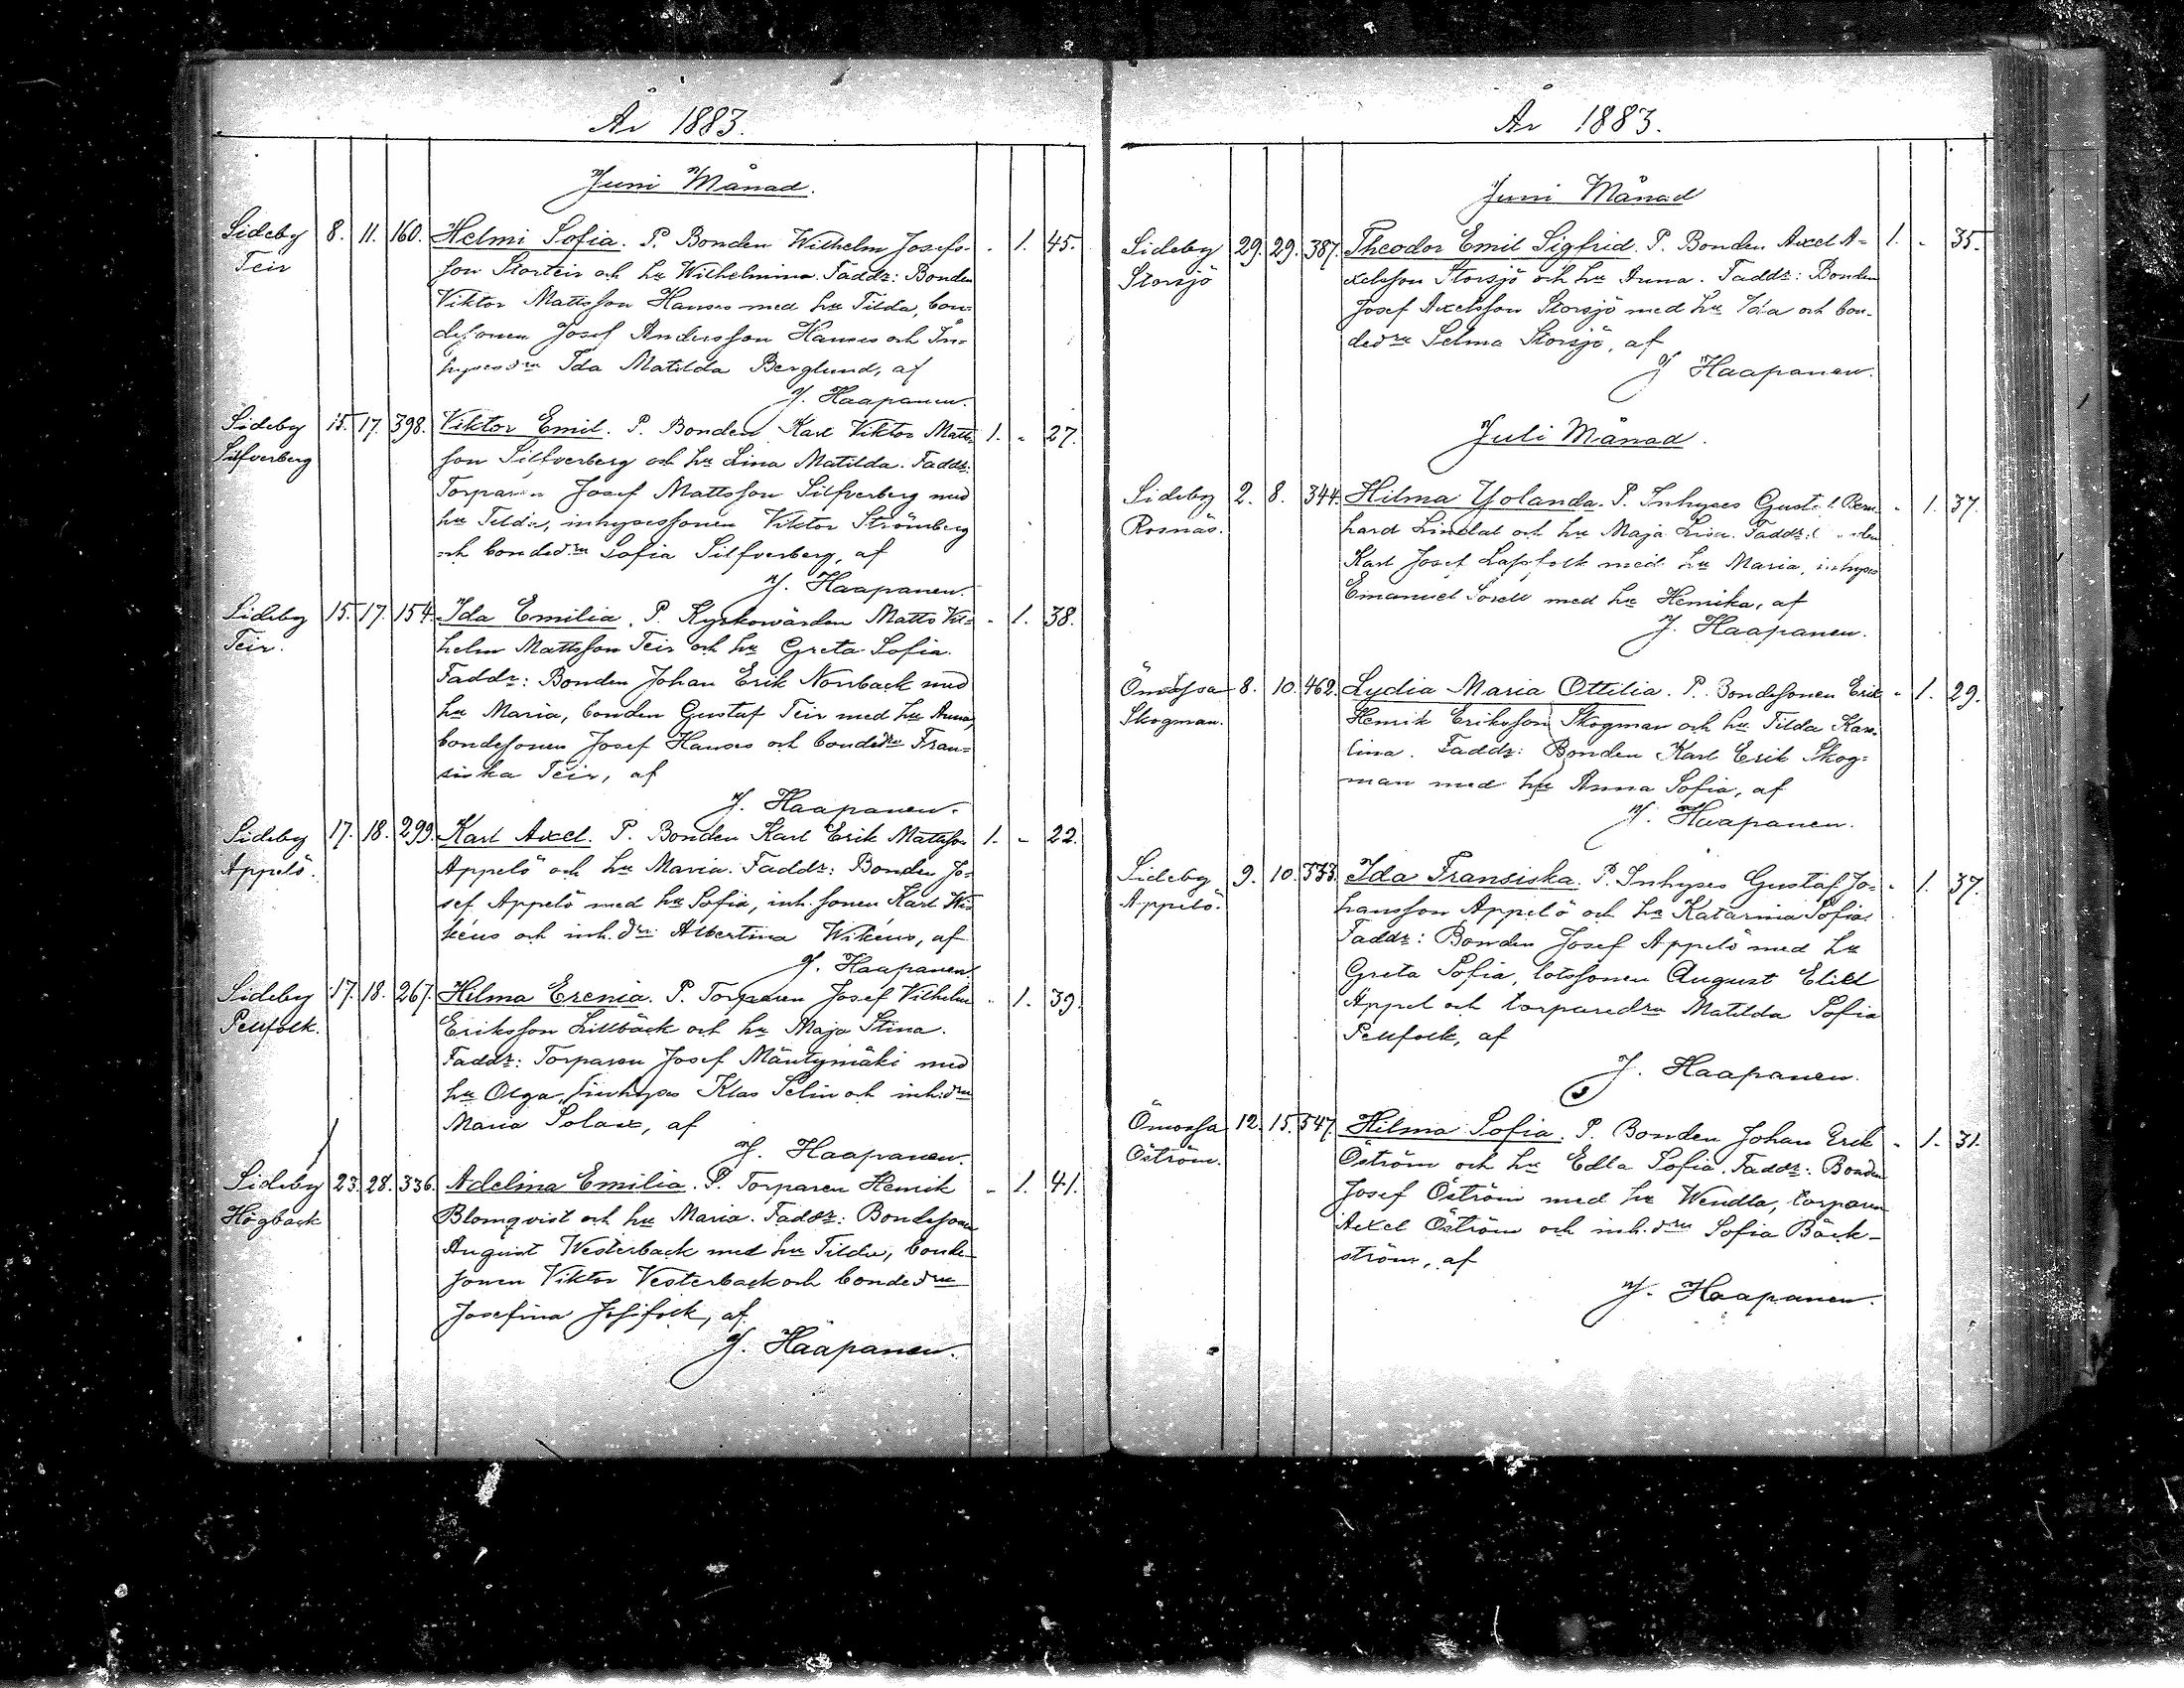 År 1883.
Juni Månad.
Sideby 8. 11. 160. Helmi Sofia. P. Bonden Wilhelm Josefs- - 1. 45.
Teir son Storteir och hu Wilhelmina. Faddr: Bonden
Viktor Mattsson Hanses med hu Tilda, bon-
desonen Josef Andersson Hanses och In-
hysesdrn Ida Matilda Berglund, af
J. Haapanen.
Sideby 15. 17. 398. Viktor Emil. P. Bonden Karl Viktor Matts- 1. - 27.
Silfverberg son Silfverberg och hu Lina Matilda. Faddr:
Torparen Josef Mattsson Silfverberg med
hu Tilda, inhysessonen Viktor Strömberg
och bondedrn Sofia Silfverberg, af
J. Haapanen.
Sideby 15. 17. 154. Ida Emilia. P. Kyrkowärden Matts Vil- - 1. 38.
Teir. helm Mattsson Teir och hu Greta Sofia.
Faddr: Bonden Johan Erik Norrback med
hu Maria, bonden Gustaf Teir med hu Anna,
bondesonen Josef Hanses och bondedrn Fran-
siska Teir, af
J. Haapanen.
Sideby 17. 18. 299. Karl Axel. P. Bonden Karl Erik Mattsson 1. - 22.
Appelö. Appelö och hu Maria. Faddr: Bonden Jo-
sef Appelö med hu Sofia, inh. sonen Karl Wi-
kéus och inh. drn Albertina Wikéus, af
J. Haapanen.
Sideby 17. 18. 267. Hilma Erenia. P. Torparen Josef Vilhelm - 1. 39.
Pellfolk. Eriksson Lillbäck och hu Maja Stina.
Faddr: Torparen Josef Mäntymäki med
hu Olga, inhyses Klas Selin och inh. drn
Maria Solax, af
J. Haapanen.
Sideby 23. 28. 336. Adelina Emilia. P. Torparen Henrik - 1. 41.
Högback Blomqvist och hu Maria. Faddr: Bondesonen
August Westerback med hu Tilda, bonde-
sonen Viktor Vesterback och bondedrn
Josefina Josifolk, af
J. Haapanen.
År 1883.
Juni Månad
Sideby 29. 29. 387. Theodor Emil Sigfrid. P. Bonden Axel A- 1. - 35.
Storsjö xelsson Storsjö och hu Anna. Faddr: Bonden
Josef Axelsson Storsjö med hu Ida och bon-
dedrn Selma Storsjö, af
J Haapanen.
Juli Månad.
Sideby 2. 8. 344. Hilma Yolanda. P. Inhyses Bern- - 1. 37.
Rosnäs. hard Lindal och hu Maja Lisa. Faddr:
Karl Josef Lassfolk med hu Maria, inhyses
Emanuel Sorell med hu Henrika, af
J. Haapanen.
Ömossa 8. 10. 462. Lydia Maria Ottilia. P. Bondesonen Erik - 1. 29.
Skogman. Henrik Eriksson Skogman och hu Tilda Karo-
lina. Faddr: Bonden Karl Erik Skog-
man med hu Anna Sofia, af
J. Haapanen.
Sideby 9. 10. 333. Ida Fransiska. P. Inhyses Gustaf Jo- - 1. 37.
Appelö. hansson Appelö och hu Katarina Sofia.
Faddr: Bonden Josef Appelö med hu
Greta Sofia, lotssonen August Elill
Appel och torparedrn Matilda Sofia
Pellfolk, af
J. Haapanen.
Ömossa 12. 15. 547. Hilma Sofia. P. Bonden Johan Erik - 1. 31.
Öström. Öström och hu Edla Sofia. Faddr: Bonden
Josef Öström med hu Wendla, torparen
Axel Öström och inh. drn Sofia Bäck-
ström, af
J. Haapanen.